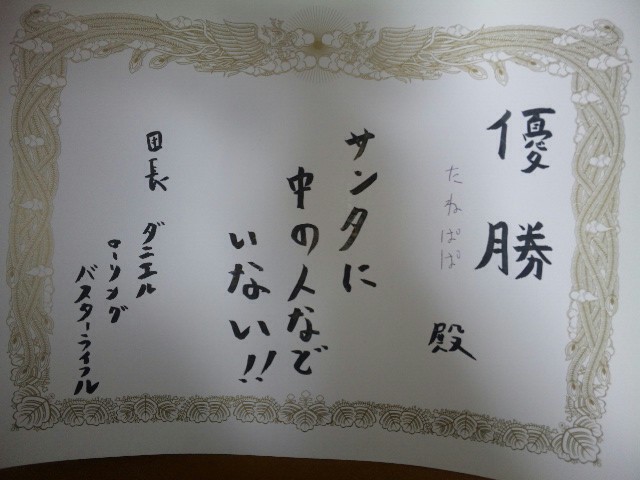 優勝
たねぱぱ
殿
サンタに
中の人など
いない!!
団長 ダニエル
ローリング
バスターライフル